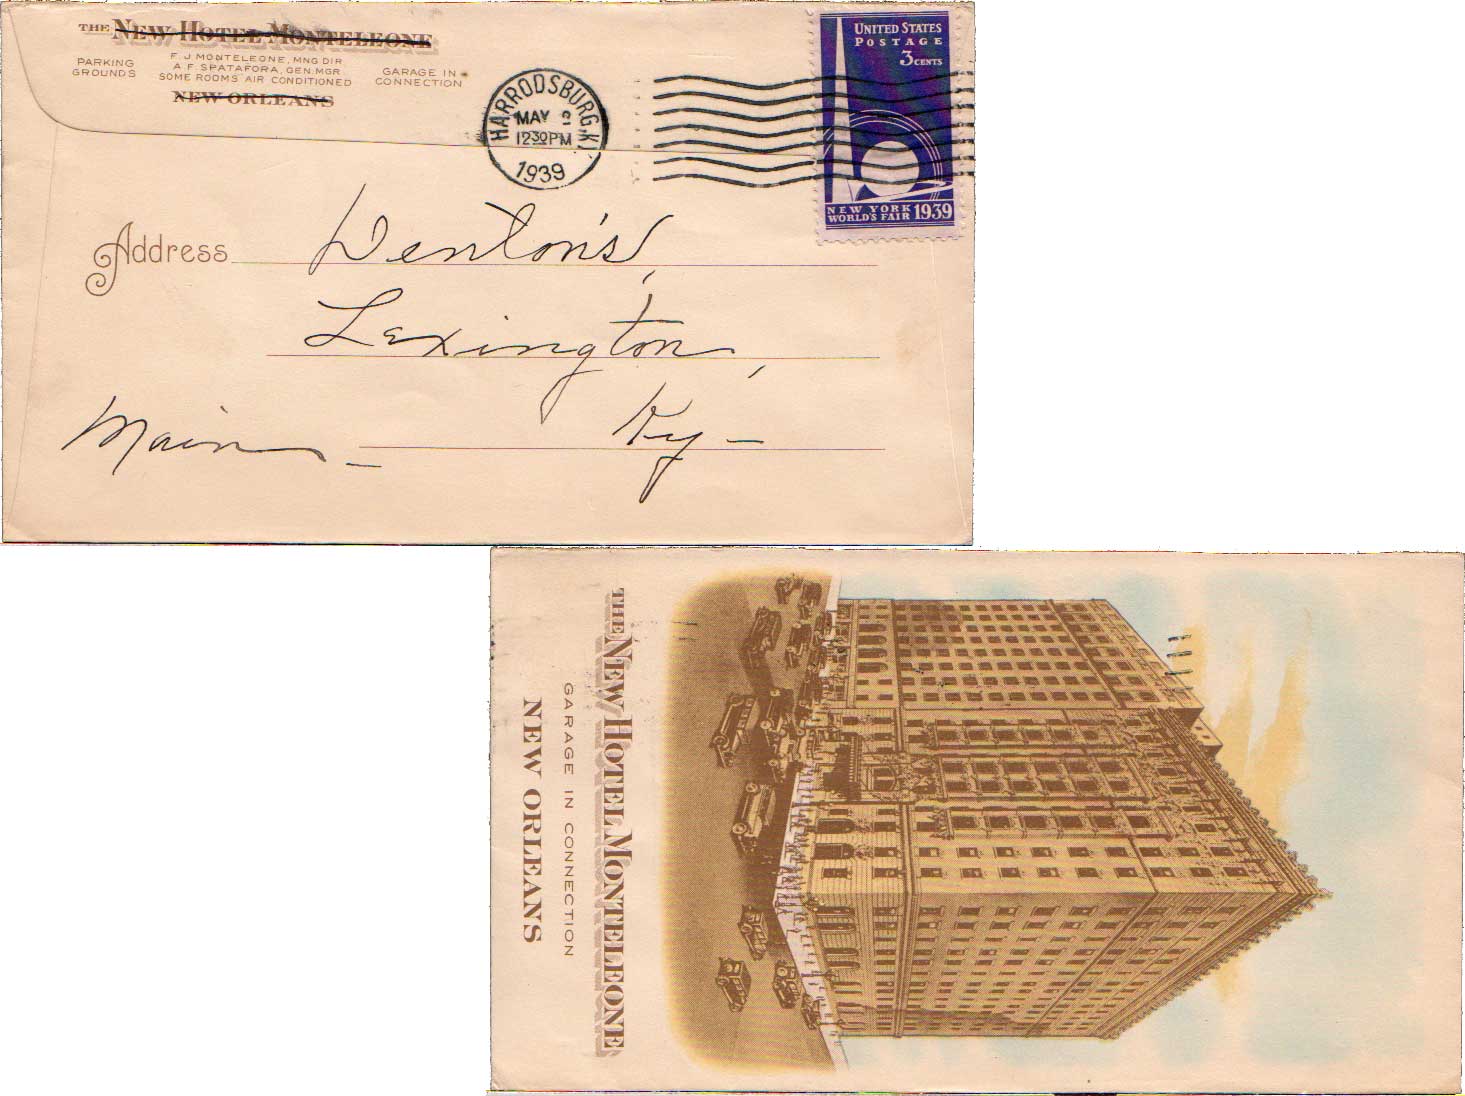 THE NEW HOTEL MONTELEONE
PARKING GROUNDS
F. J. MONTELEONE, MNG DIR.
A. F. SPATAFORA, GEN. MGR.
SOME ROOMS AIR CONDITIONED
GARAGE IN CONNECTION
NEW ORLEANS
HARRODSBURG, K
MAY 2
12 30 PM
1939
UNITED STATES
POSTAGE
3 CENTS
NEW YORK
WORLD'S FAIR 1939
Address Denton's,
Lexington,
Main - Ky -
THE NEW HOTEL MONTELEONE
GARAGE IN CONNECTION
NEW ORLEANS